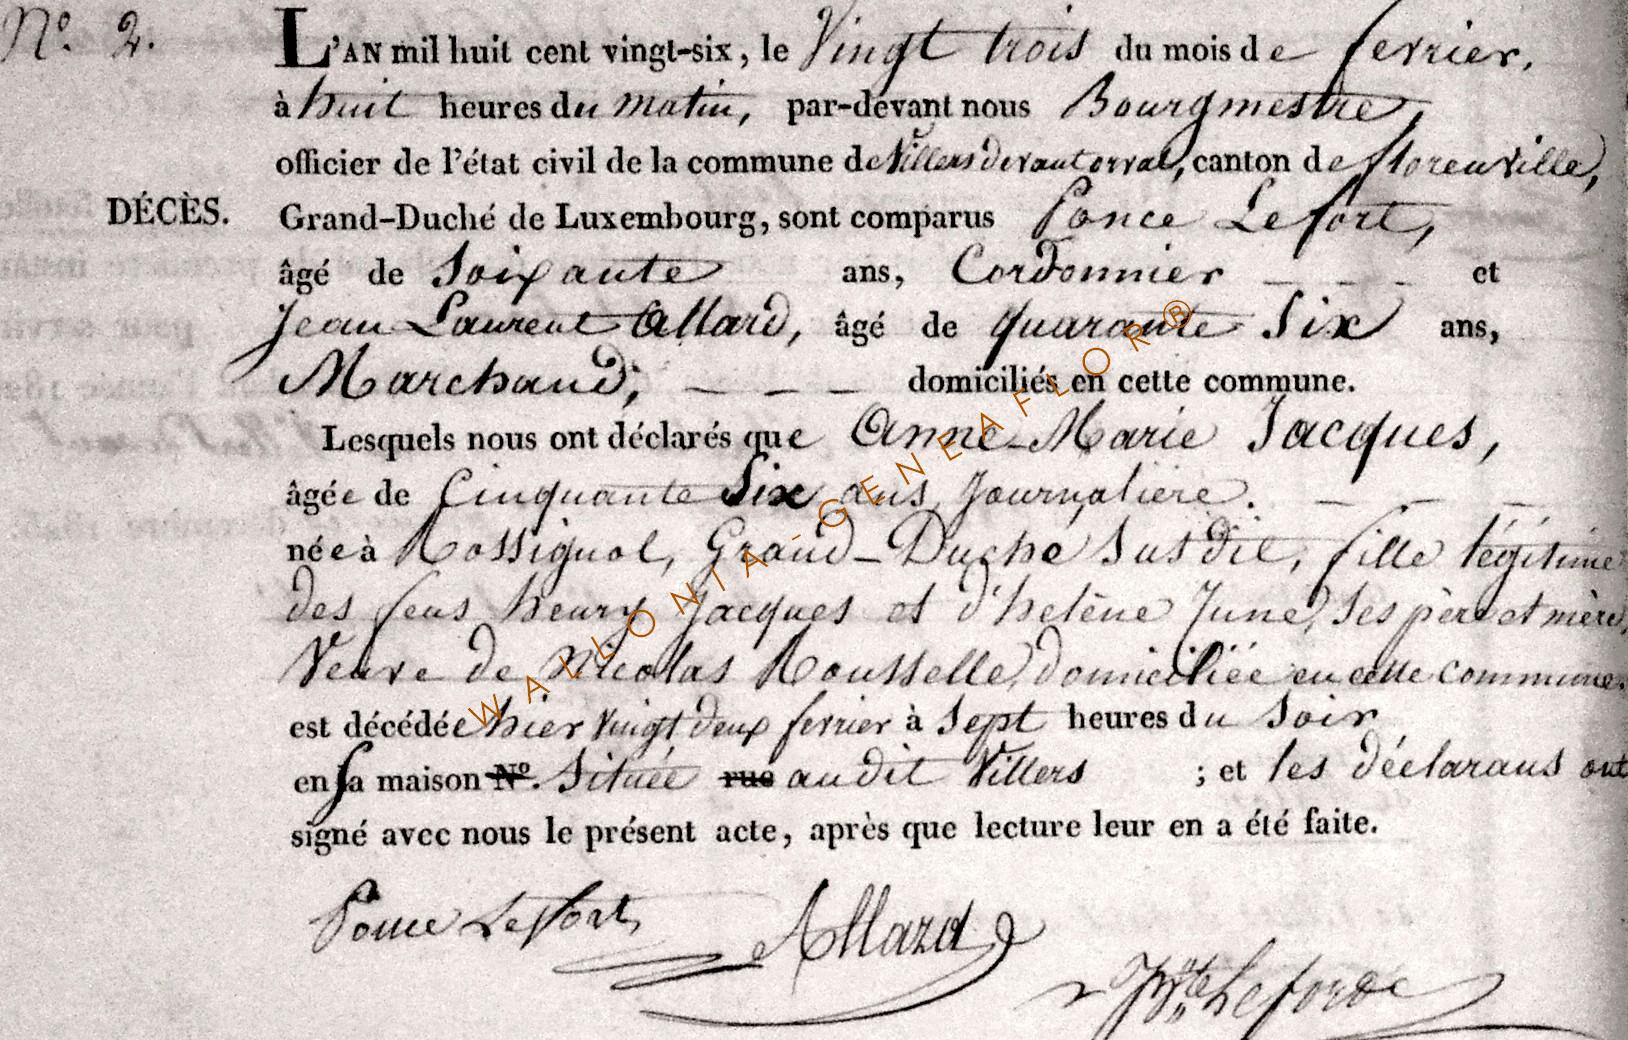 N.° 2.
L'AN mil huit cent vingt-six, le Vingt trois du mois de fevrier,
à huit heures du matin, par-devant nous Bourgmestre,
officier de l'état civil de la commune de Villers devant orval, canton de florenville,
DÉCÈS. Grand-Duché de Luxembourg, sont comparus Ponce Lefort,
âgé de Soixante ans, Cordonnier _ _ _ _ et
Jean Laurent Allard, âgé de quarante Six ans,
Marchand, _ _ _ domiciliés en cette commune.
Lesquels nous ont déclarés que Anne-Marie Jacques,
âgée de Cinquante Six ans, Journaliere. _ _ _
née à Rossignol, Grand-Duché Susdit, fille légitime
des feus henry Jacques et d'helène June, Ses père et mère,
Veuve de Nicolas Rousselle, domiciliée en cette commune.
est décédée hier vingt deux fevrier à Sept heures du Soir
en sa maison N°. Située rue audit Villers ; et les déclarans ont
signé avec nous le présent acte, après que lecture leur en a été faite.
Ponce Lefort Allard
Lefort
WALLONIA-GENEAFLOR®